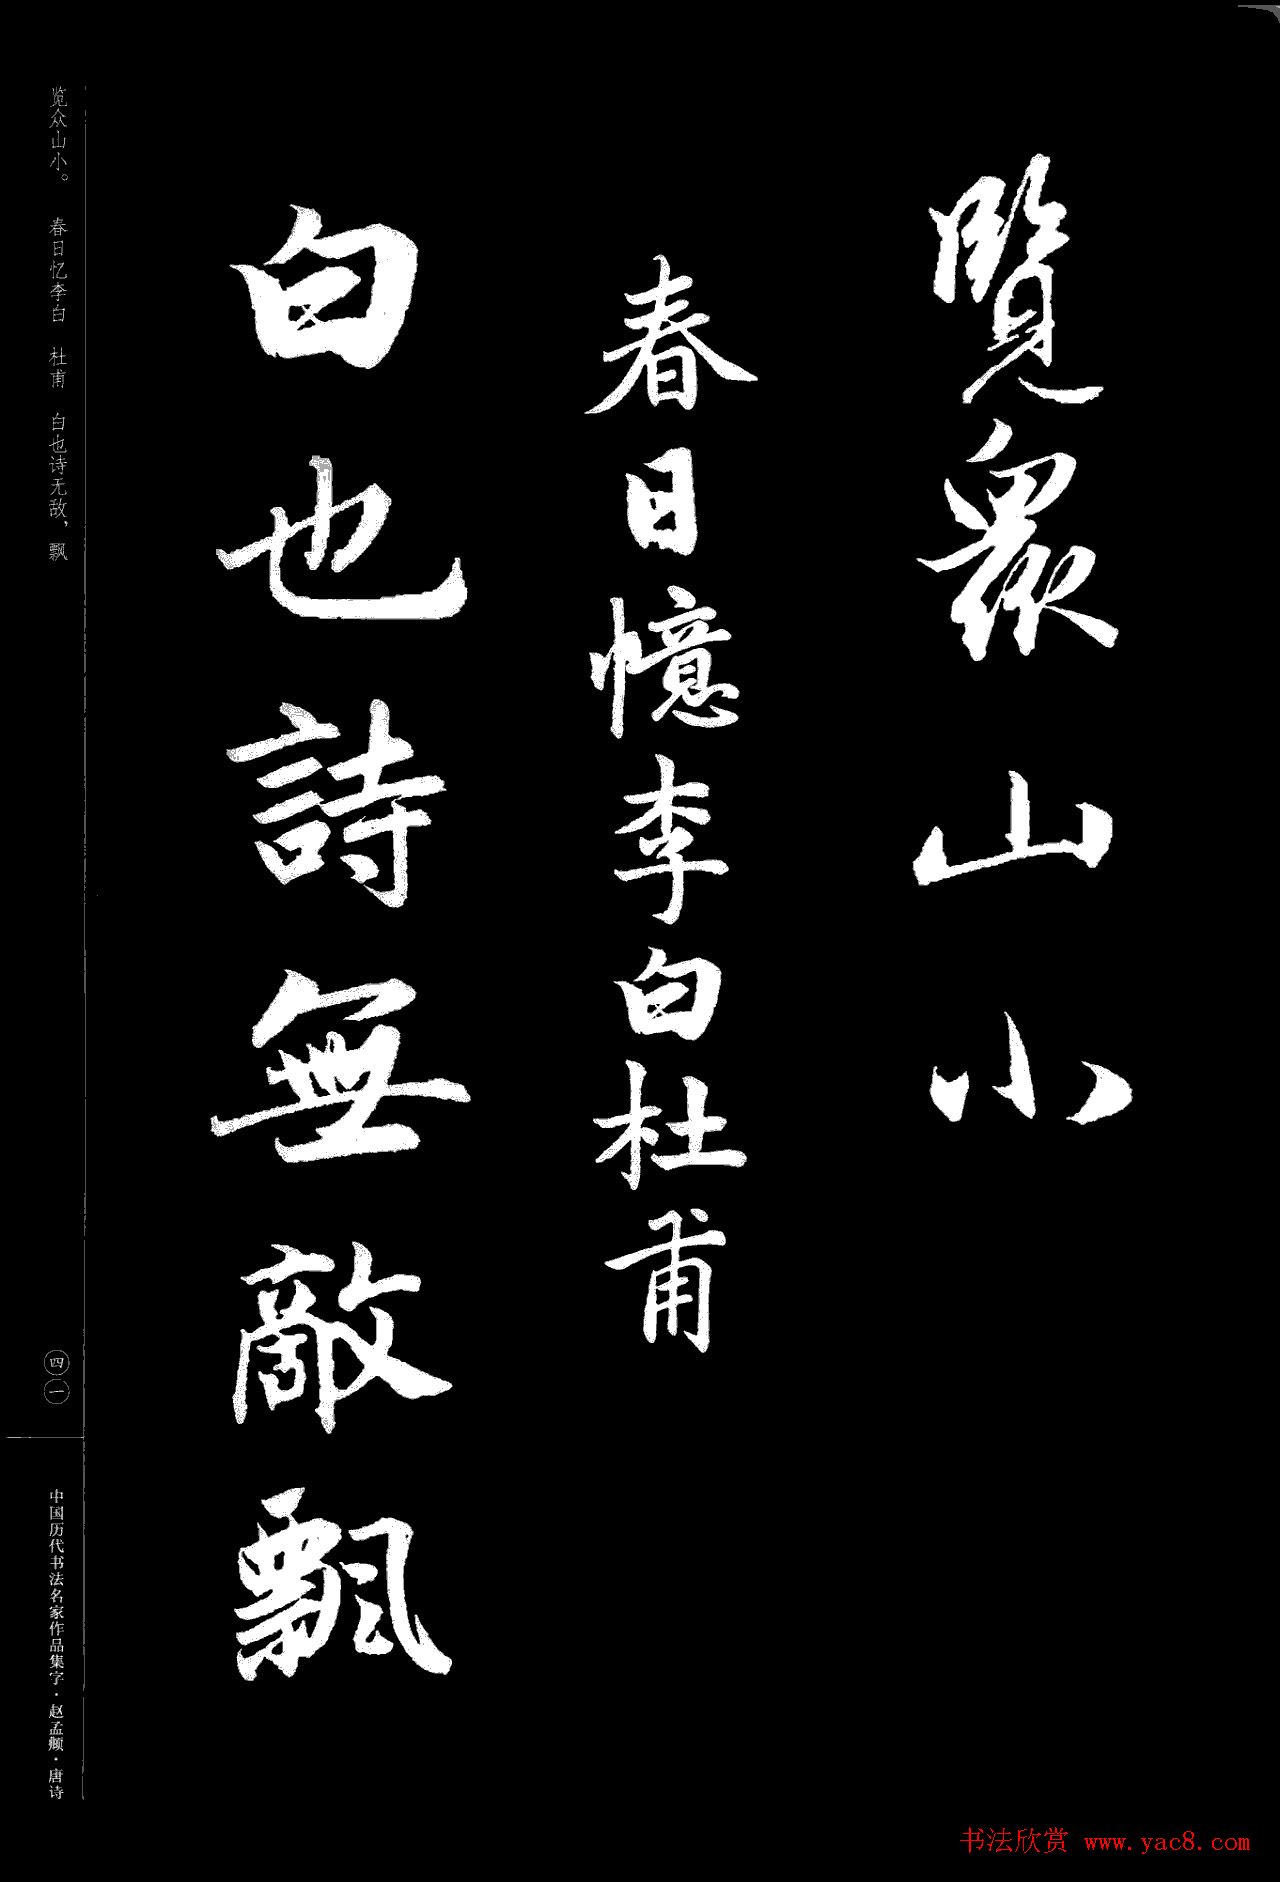 覽衆山小
春日憶李白杜甫
白也詩無敵飄
览众山小。 春日忆李白 杜甫 白也诗无敌，飘
四一
中国历代书法名家作品集字·赵孟頫·唐诗
书法欣赏 www.yac8.com